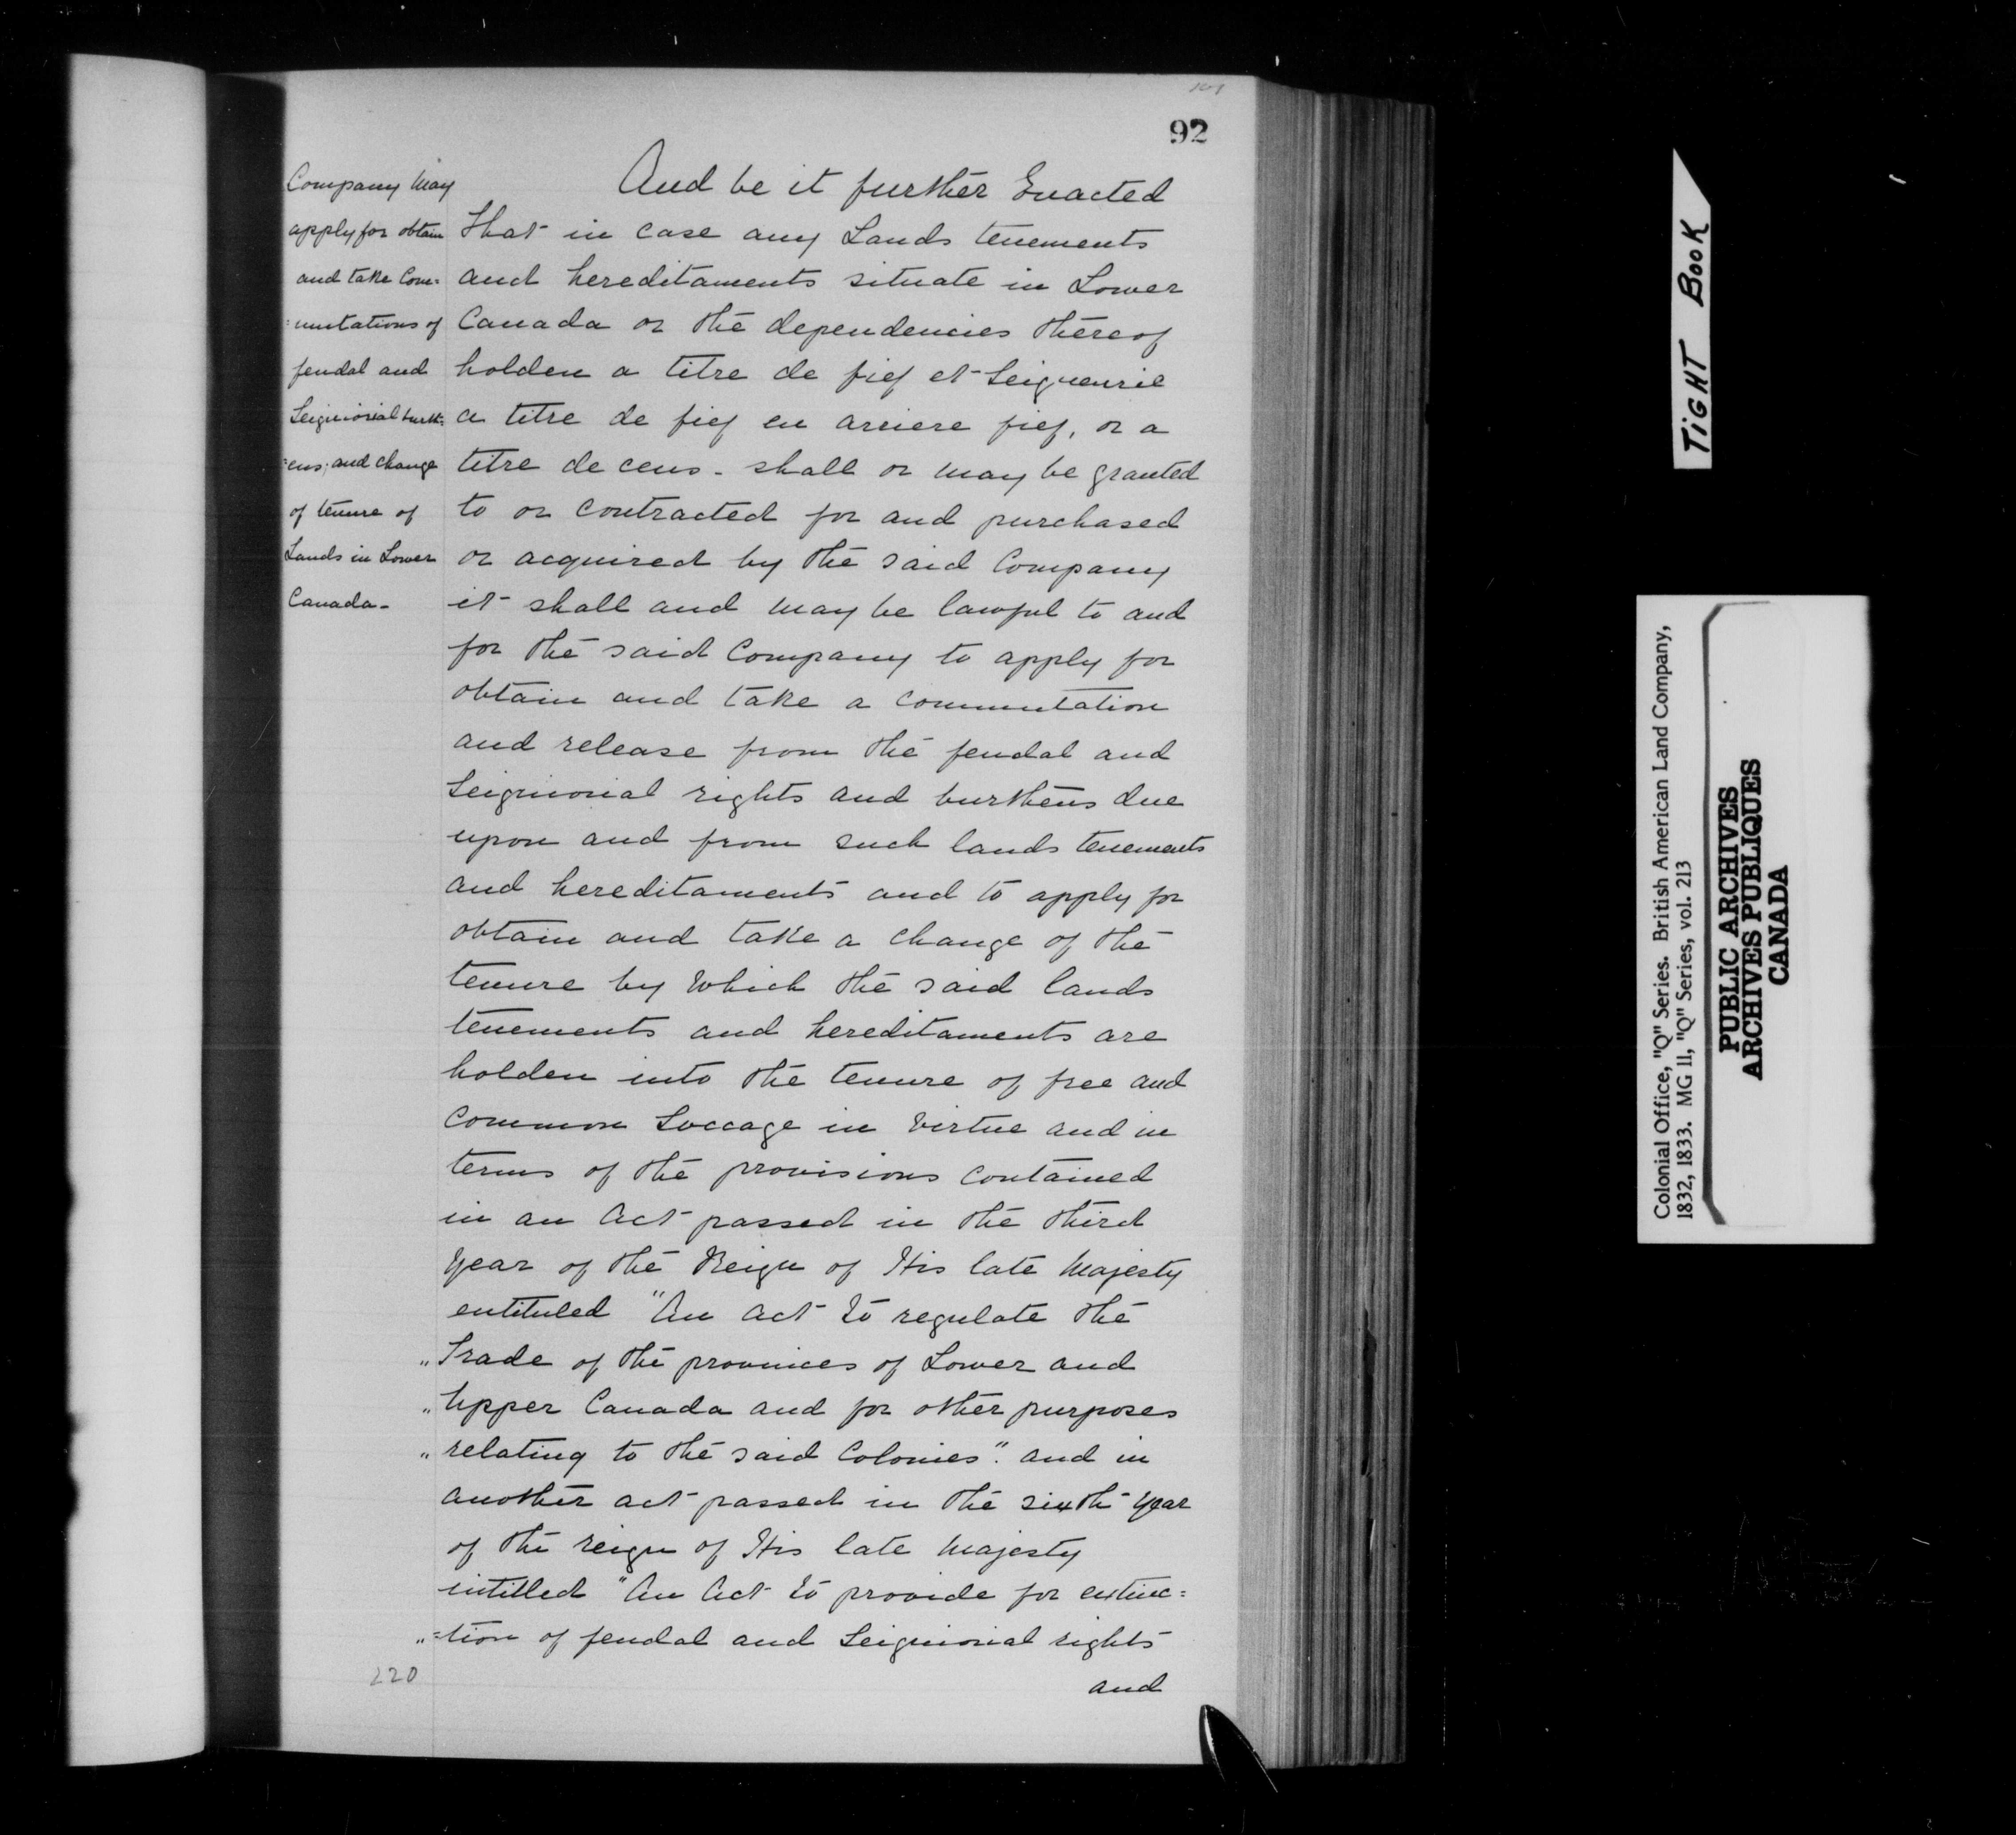 92
Company May
apply for obtain
and take Com=
=mutations of
feudal and
Seigniorial burth=
=ens; and change
of tenure of
Lands in Lower
Canada -
And be it further Enacted
that in case any Lands tenements
and hereditaments situate in Lower
Canada or the dependencies thereof
holden a titre de fief et Seigneurie
a titre de fief en arriere fief, or a
titre de cens - shall or may be granted
to or contracted for and purchased
or acquired by the said Company
it shall and may be lawful to and
for the said Company to apply for
obtain and take a commutation
and release from the feudal and
Seigniorial rights and burthens due
upon and from such lands tenements
and hereditaments and to apply for
obtain and take a change of the
tenure by which the said lands
tenements and hereditaments are
holden into the tenure of free and
common Soccage in virtue and in
terms of the provisions contained
in an Act passed in the third
Year of the Reign of His late Majesty
entituled "An Act to regulate the
"Trade of the provinces of Lower and
"Upper Canada and for other purposes
"relating to the said Colonies". and in
another act passed in the sixth Year
of the reign of His late Majesty
intitled "An Act to provide for extinc=
"=tion of feudal and Seigniorial rights
and
220
TIGHT BOOK
Colonial Office, "Q" Series. British American Land Company,
1832, 1833. MG 11, "Q" Series, vol. 213
PUBLIC ARCHIVES
ARCHIVES PUBLIQUES
CANADA